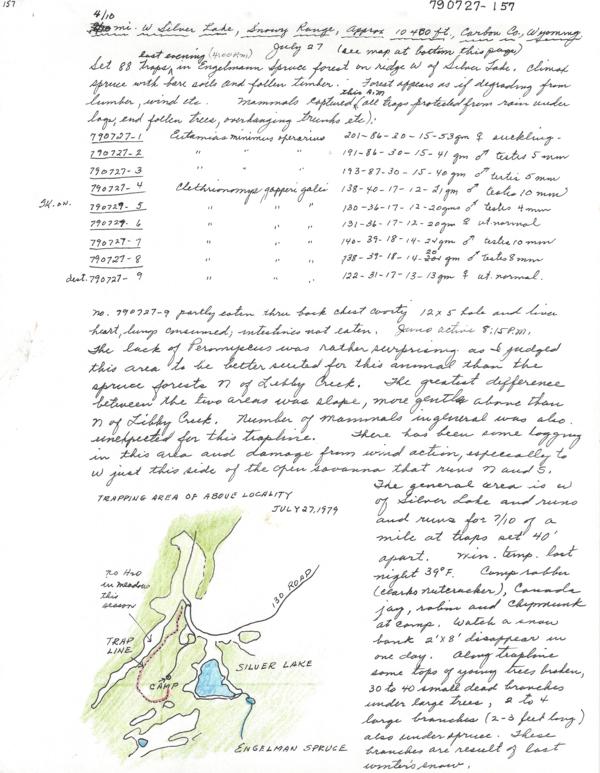 157
790727-157
4/10
mi. W Silver Lake, Snowy Range, Approx 10400 ft, Carbon Co, Wyoming
July 27 (see map at bottom this page)
last evening (4:00 P.M)
Set 88 traps, in Engelmann Spruce forest on ridge W of Silver Lake. Climax
spruce with bare soils and fallen timber. Forest appears as if degrading from
lumber, wind etc. Mammals captured this A.M. (all traps protected from rain under
logs, end fallen trees, overhanging trunks etc):
790727-1 Eutamias minimus operarius 201-86-30-15-53gm ♀ suckling-
790727-2 " " " 191-86-30-15-41 gm ♂ testes 5 mm
790727-3 " " " 193-87-30-15-40 gm ♂ testes 5 mm
790727-4 Clethrionomys gapperi galei 138-40-17-12-21gm ♂ testes 10 mm)
Sk. on. 790727-5 " " " 130-36-17-12-20gms ♂ testes 4mm
790727-6 " " " 131-36-17-12-20gm ♀ ut. normal
790727-7 " " " 140-39-18-14-24gm ♂ testes 10mm
790727-8 " " " 138-39-18-14-20 ♂ testes 8mm
dest. 790727-9 " " " 122-31-17-13-13gm ♀ ut. normal.
No. 790727-9 partly eaten thru back chest cavity 12x5 hole and liver
heart, lungs consumed; intestines not eaten. Junco active 8:15 P.M.
The lack of Peromyscus was rather surprising as I judged
this area to be better suited for this animal than the
spruce forests N of Libby Creek. The greatest difference
between the two areas was slope, more gentle above than
N of Libby Creek. Number of mammals in general was also
unexpected for this trapline. There has been some logging
in this area and damage from wind action, especially to
W just this side of the open savanna that runs N and S.
The general area is W
of Silver Lake and runs
and runs for 7/10 of a
mile at traps set 40'
apart. Min. temp. last
night 39°F. Camp robber
(Clarks nutcracker), Canada
jay, robin and chipmunk
at camp. Watch a snow
bank 2'x8' disappear in
one day. Along trapline
some tops of young trees broken,
30 to 40 small dead branches
under large trees, 2 to 4
large branches (2-3 feet long)
also under spruce. These
branches are result of last
winter's snow.
TRAPPING AREA OF ABOVE LOCALITY
JULY 27, 1979
No H2O
in meadow
this
season
130 ROAD
TRAP
LINE
CAMP
SILVER LAKE
ENGELMAN SPRUCE